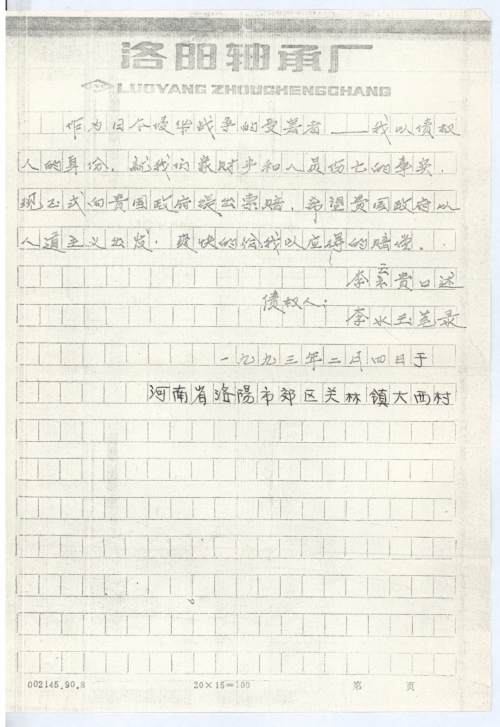 洛阳轴承厂
LUOYANG ZHOUCHENGCHANG
作为日今侵华战争的受害者——我以债权
人的身份，就我们家财产和人员伤亡的事实，
现正式向贵国政府提出索赔，希望贵国政府以
人道主义出发，爽快的给我以应得的赔偿。
李云贵口述
债权人：
李水玉笔录
一九九三年二月四日于
河南省洛阳市郊区关林镇大西村
002145.90.8 20×15=300 第 页